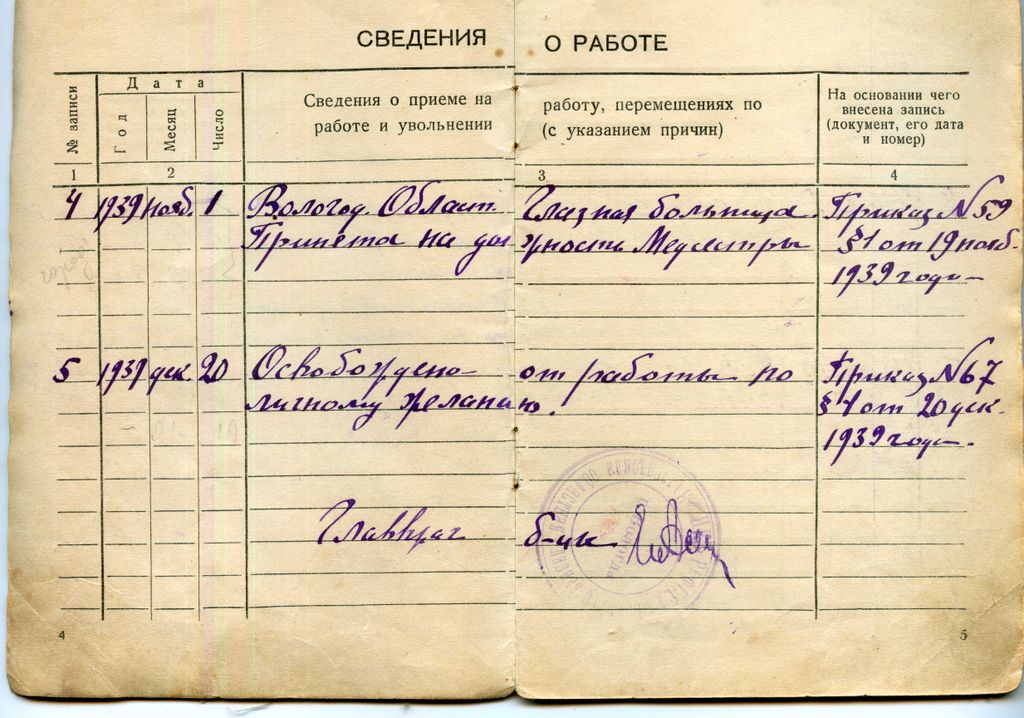 СВЕДЕНИЯ О РАБОТЕ
№ записи
Дата
Год
Месяц
Число
Сведения о приеме на работу, перемещениях по
работе и увольнении (с указанием причин)
На основании чего
внесена запись
(документ, его дата
и номер)
1 2 3 4
4 1939 нояб. 1 Вологод. Област. Глазная больница. Приказ N 59
Принята на должность Медсестры §1 от 19 нояб.
1939 года
5 1939 дек. 20 Освобождена от работы по Приказ N 67
личному желанию. §1 от 20 дек.
1939 года.
Главврач б-цы
4 5